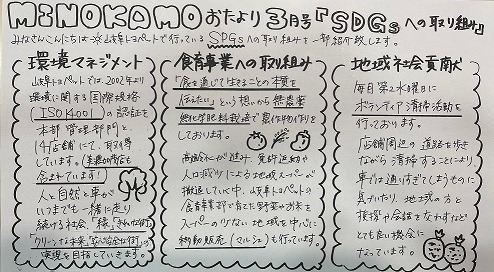 MINOKAMOおたより3月号『SDGsへの取り組み』
みなさんこんにちは☆岐阜トヨペットで行っているSDGsへの取り組みを一部紹介致します。
環境マネジメント
岐阜トヨペットでは、2002年より
環境に関する国際規格
「ISO14001」の認証を
本部管理部門と、
14店舗にて、取得
しています。(美濃加茂店も
含まれています!)
人と自然と車が
いつまでも一緒に走り
続ける社会、「緑、きれいな街」
「クリーンな未来、安心安全な街」の
実現を目指していきます。
食育事業への取り組み
「食を通じて生きることの本質を
伝えたい」という想いから無農薬
無化学肥料栽培で農作物作りを
しております。
高齢化が進み、免許返納や
人口減少による地域スーパーが
撤退していく中、岐阜トヨペットの
食育事業部で育てた野菜やお米を
スーパーの少ない地域を中心に
移動販売(マルシェ)も行っています。
地域社会貢献
毎月第2水曜日に
ボランティア清掃活動を
行っております。
店舗周辺の道路を歩き
ながら清掃することにより
車では通りすぎてしまうものに
気づいたり、地域の方と
挨拶や会話を交わすなど
とても良い機会に
なっています。